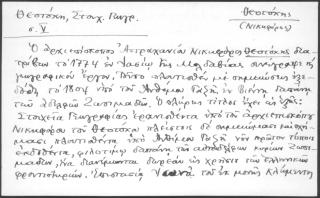 Θεοτόκη, Στοιχ. Γεωγρ.
σ. V
Θεοτόκης
(Νικηφόρος)
Ὁ ἀρχιεπίσκοπος Ἀστραχανίου Νικηφόρος Θεοτόκης δια-
τρίβων τὸ 1774 ἐν Ἰασίῳ τῆς Μολδαβίας συνέγραψε
γεωγραφικὸν ἔργον. Τοῦτο πλουτισθὲν μὲ σημειώσεις ἐξε-
δόθη τὸ 1804 ὑπὸ τοῦ Ἀνθίμου Γαζῆ ἐν Βιέννῃ δαπάνῃ
τῶν ἀδελφῶν Ζωσιμαδῶν. Ὁ πλήρης τίτλος ἔχει ὡς ἑξῆς:
Στοιχεῖα Γεωγραφίας ἐρανισθέντα ὑπὸ τοῦ ἀρχιεπισκόπου
Νικηφόρου τοῦ Θεοτόκου πλείστοις δὲ σημειώμασι καὶ σχή-
μασι πλουτισθέντα ὑπὸ Ἀνθίμου Γαζῆ νῦν πρῶτον τύποις
ἐκδοθέντα, φιλοτίμῳ δαπάνῃ τῶν αὐταδέλφων κυρίων Ζωσι-
μάδων, ἵνα διανέμωνται δωρεὰν εἰς χρῆσιν τῶν ἑλληνικῶν
φροντιστηρίων. Ἐπιστασίᾳ τοῦ ἐκ μονῆς